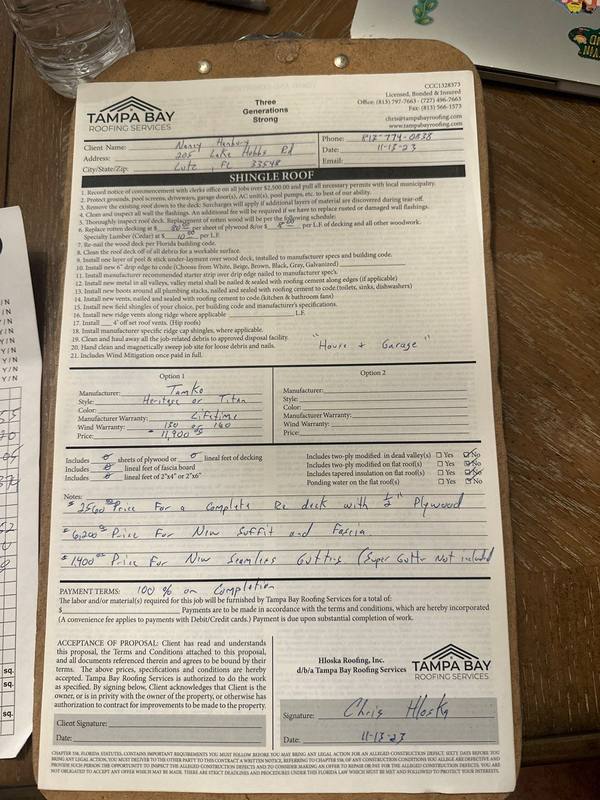 TAMPA BAY
ROOFING SERVICES
Three
Generations
Strong
CCC1328373
Licensed, Bonded & Insured
Office: (813) 797-7663 · (727) 496-7663
Fax: (813) 566-1573
chris@tampabayroofing.com
www.tampabayroofing.com
Client Name: Nancy Hanbury
Address: 205 Lake Hobbs Rd
City/State/Zip: Lutz, FL 33548
Phone: 813-774-0838
Date: 11-13-23
Email:
SHINGLE ROOF
1. Record notice of commencement with clerks office on all jobs over $2,500.00 and pull all necessary permits with local municipality.
2. Protect grounds, pool screens, driveways, garage door(s), AC unit(s), pool pumps, etc. to best of our ability.
3. Remove the existing roof down to the deck: Surcharges will apply if additional layers of material are discovered during tear-off.
4. Clean and inspect all wall the flashings. An additional fee will be required if we have to replace rusted or damaged wall flashings.
5. Thoroughly inspect roof deck. Replacement of rotten wood will be per the following schedule:
6. Replace rotten decking at $ 80 per sheet of plywood &/or $ 8 per L.F. of decking and all other woodwork.
Specialty Lumber (Cedar) at $ 10 per L.F.
7. Re-nail the wood deck per Florida building code.
8. Clean the roof deck off of all debris for a workable surface.
9. Install one layer of peel & stick under-layment over wood deck, installed to manufacturer specs and building code.
10. Install new 6" drip edge to code (Choose from White, Beige, Brown, Black, Gray, Galvanized)
11. Install manufacturer recommended starter strip over drip edge nailed to manufacturer spec's.
12. Install new metal in all valleys, valley metal shall be nailed & sealed with roofing cement along edges (if applicable)
13. Install new boots around all plumbing stacks, nailed and sealed with roofing cement to code(toilets, sinks, dishwashers)
14. Install new vents, nailed and sealed with roofing cement to code.(kitchen & bathroom fans)
15. Install new field shingles of your choice, per building code and manufacture's specifications.
16. Install new ridge vents along ridge where applicable L.F.
17. Install 4' off set roof vents. (Hip roofs)
18. Install manufacturer specific ridge cap shingles, where applicable.
19. Clean and haul away all the job-related debris to approved disposal facility.
20. Hand clean and magnetically sweep job site for loose debris and nails.
21. Includes Wind Mitigation once paid in full.
"House + Garage"
Option 1
Manufacturer: Tamko
Style: Heritage or Titan
Color:
Manufacturer Warranty: Lifetime
Wind Warranty: 130 or 160
Price: $ 11,900
Option 2
Manufacturer:
Style:
Color:
Manufacturer Warranty:
Wind Warranty:
Price:
Includes 0 sheets of plywood or 0 lineal feet of decking
Includes 0 lineal feet of fascia board
Includes 0 lineal feet of 2"x4" or 2"x6"
Includes two-ply modified in dead valley(s) ☐ Yes ☑ No
Includes two-ply modified on flat roof(s) ☐ Yes ☑ No
Includes tapered insulation on flat roof(s) ☐ Yes ☑ No
Ponding water on the flat roof(s) ☐ Yes ☑ No
Notes:
$2500 Price For a Complete Re deck with 1/2" Plywood
$6,200 Price For New Soffit and Fascia.
$1,400 Price For New Seamless Gutters (Super Gutter Not included
PAYMENT TERMS: 100 % on Completion
The labor and/or material(s) required for this job will be furnished by Tampa Bay Roofing Services for a total of:
$ Payments are to be made in accordance with the terms and conditions, which are hereby incorporated
(A convenience fee applies to payments with Debit/Credit cards.) Payment is due upon substantial completion of work.
ACCEPTANCE OF PROPOSAL: Client has read and understands
this proposal, the Terms and Conditions attached to this proposal,
and all documents referenced therein and agrees to be bound by
their terms. The above prices, specifications and conditions are
hereby accepted. Tampa Bay Roofing Services is authorized to do the work
as specified. By signing below, Client acknowledges that Client is the
owner, or is in privity with the owner of the property, or otherwise has
authorization to contract for improvements to be made to the property.
Client Signature:
Date:
Hloska Roofing, Inc.
d/b/a Tampa Bay Roofing Services
TAMPA BAY
ROOFING SERVICES
Signature: Chris Hloska
Date: 11-13-23
CHAPTER 558, FLORIDA STATUTES, CONTAINS IMPORTANT REQUIREMENTS YOU MUST FOLLOW BEFORE YOU MAY BRING ANY LEGAL ACTION FOR AN ALLEGED CONSTRUCTION DEFECT. SIXTY DAYS BEFORE YOU
BRING ANY LEGAL ACTION, YOU MUST DELIVER TO THE OTHER PARTY TO THIS CONTRACT A WRITTEN NOTICE, REFERRING TO CHAPTER 558, OF ANY CONSTRUCTION CONDITIONS YOU ALLEGE ARE DEFECTIVE AND
PROVIDE SUCH PERSON THE OPPORTUNITY TO INSPECT THE ALLEGED CONSTRUCTION DEFECTS AND TO CONSIDER MAKING AN OFFER TO REPAIR OR PAY FOR THE ALLEGED CONSTRUCTION DEFECTS. YOU ARE
NOT OBLIGATED TO ACCEPT ANY OFFER WHICH MAY BE MADE. THERE ARE STRICT DEADLINES AND PROCEDURES UNDER THIS FLORIDA LAW WHICH MUST BE MET AND FOLLOWED TO PROTECT YOUR INTERESTS.
Y/N
Y/N
Y/N
Y/N
Y/N
sq.
sq.
sq.